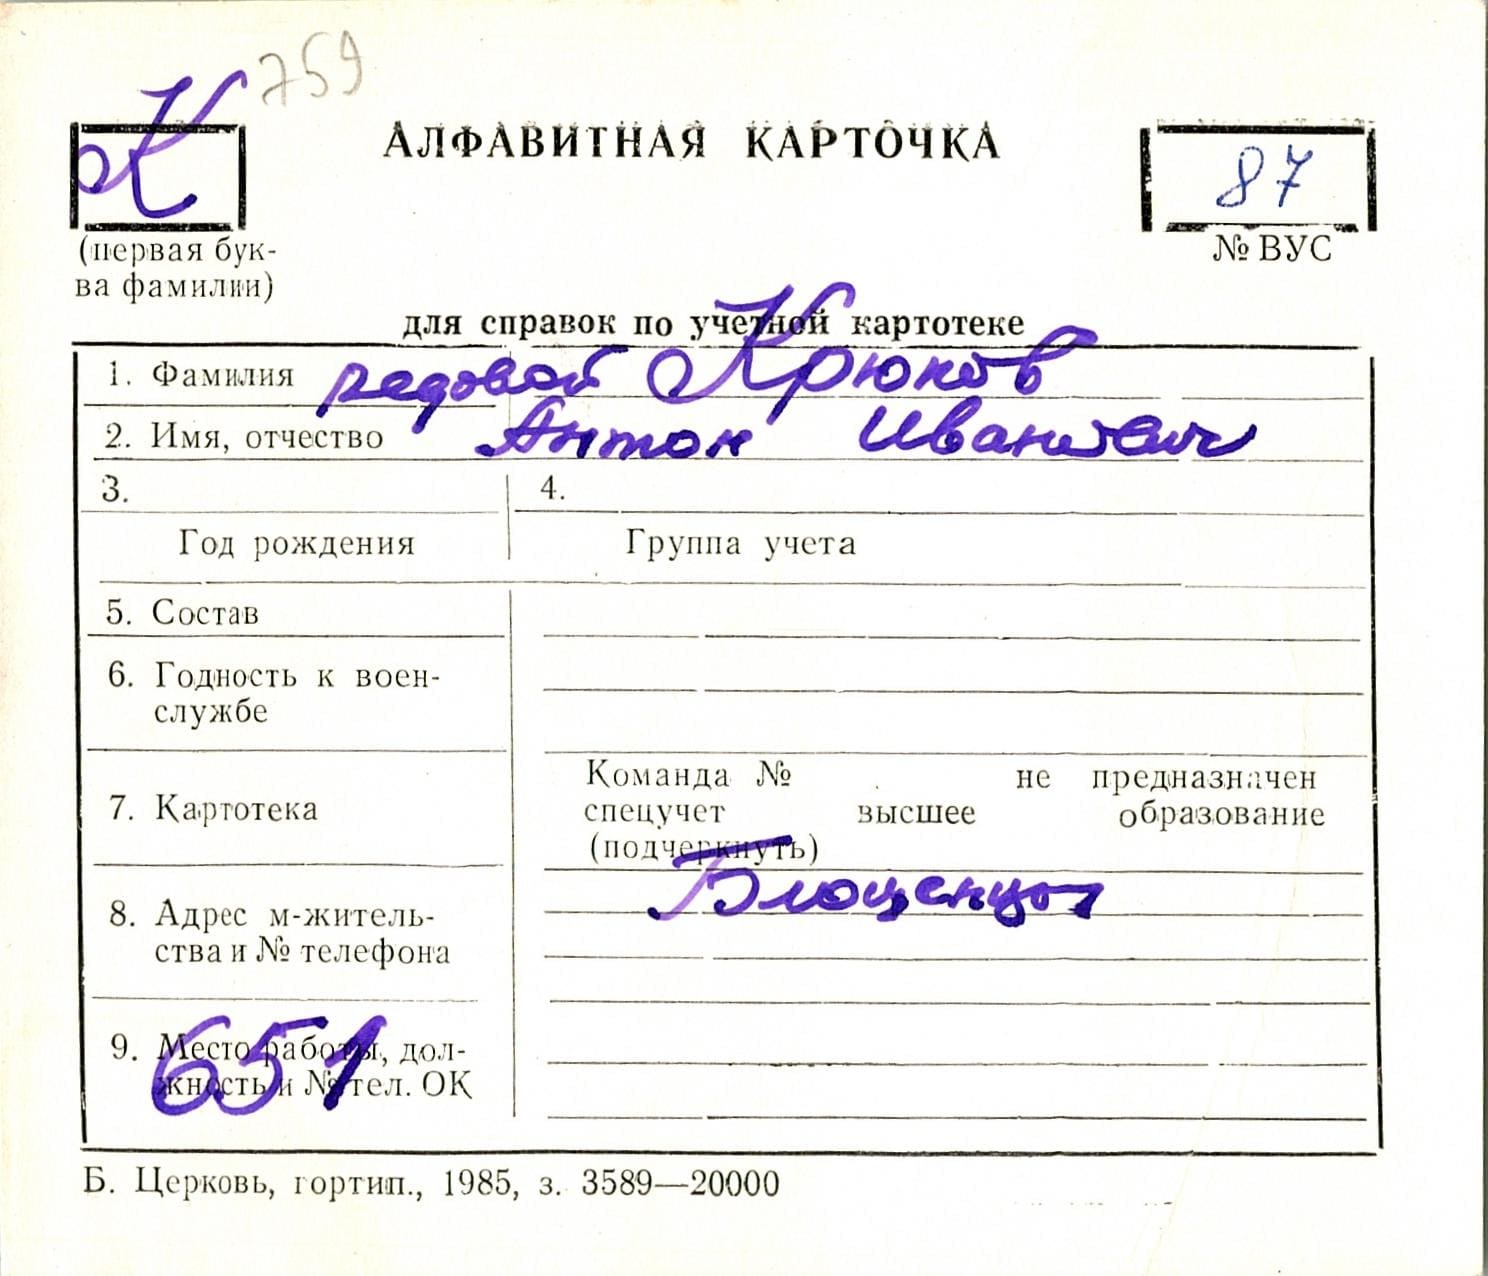 759
К
АЛФАВИТНАЯ КАРТОЧКА
87
(первая бук-
ва фамилии)
№ ВУС
для справок по учетной картотеке
1. Фамилия рядовой Крюков
2. Имя, отчество Антон Иванович
3.
4.
Год рождения
Группа учета
5. Состав
6. Годность к воен-
службе
7. Картотека
Команда № не предназначен
спецучет высшее образование
(подчеркнуть)
Блощенцы
8. Адрес м-житель-
ства и № телефона
9. Место работы, дол-
жность и № тел. ОК
651
Б. Церковь, гортип., 1985, з. 3589—20000